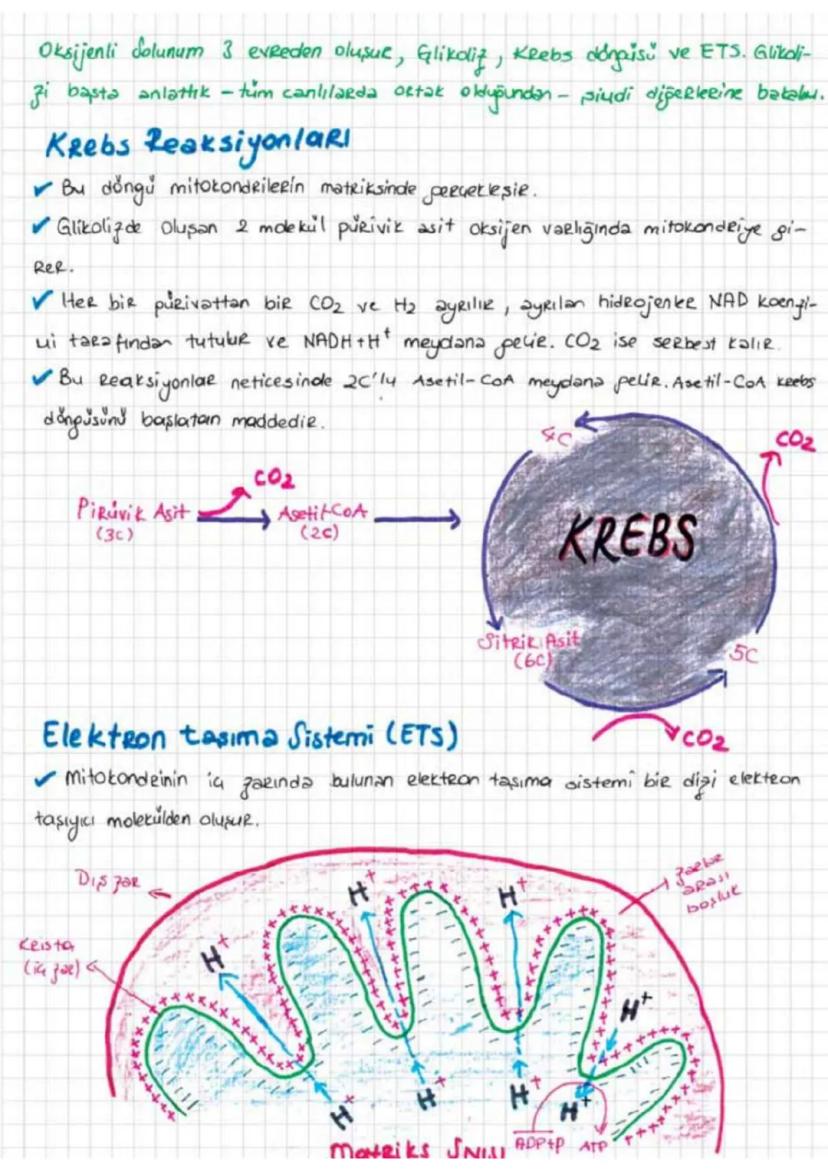 Oksijenli Solunum 3 evreden oluşur, Glikoliz, Krebs döngüsü ve ETS. Glikoli-
zi başta anlattık - tüm canlılarda ortak olduğundan - şimdi diğerlerine bakalım.
Krebs Reaksiyonları
✓ Bu döngü mitokondrilerin matriksinde gerçekleşir.
✓ Glikolizde oluşan 2 molekül pürivik asit oksijen varlığında mitokondriye gi-
rer.
✓ Her bir pürivattan bir CO2 ve H2 ayrılır, ayrılan hidrojenler NAD koenzi-
mi tarafından tutulur ve NADH+H+ meydana gelir. CO2 ise serbest kalır.
✓ Bu reaksiyonlar neticesinde 2C'lu Asetil-CoA meydana gelir. Asetil-CoA krebs
döngüsünü başlatan maddedir.
4C
CO2
CO2
Pirüvik Asit
(3C)
Asetil-CoA
(2C)
KREBS
Sitrik Asit
(6C)
5C
CO2
Elektron taşıma Sistemi (ETS)
✓ Mitokondrinin iç zarında bulunan elektron taşıma sistemi bir dizi elektron
taşıyıcı molekülden oluşur.
Dış zar
zarlar
arası
boşluk
H+
H+
H+
Krista
(iç zar)
H+
H+
H+
H+
H+
ADP+P
ATP
Matriks